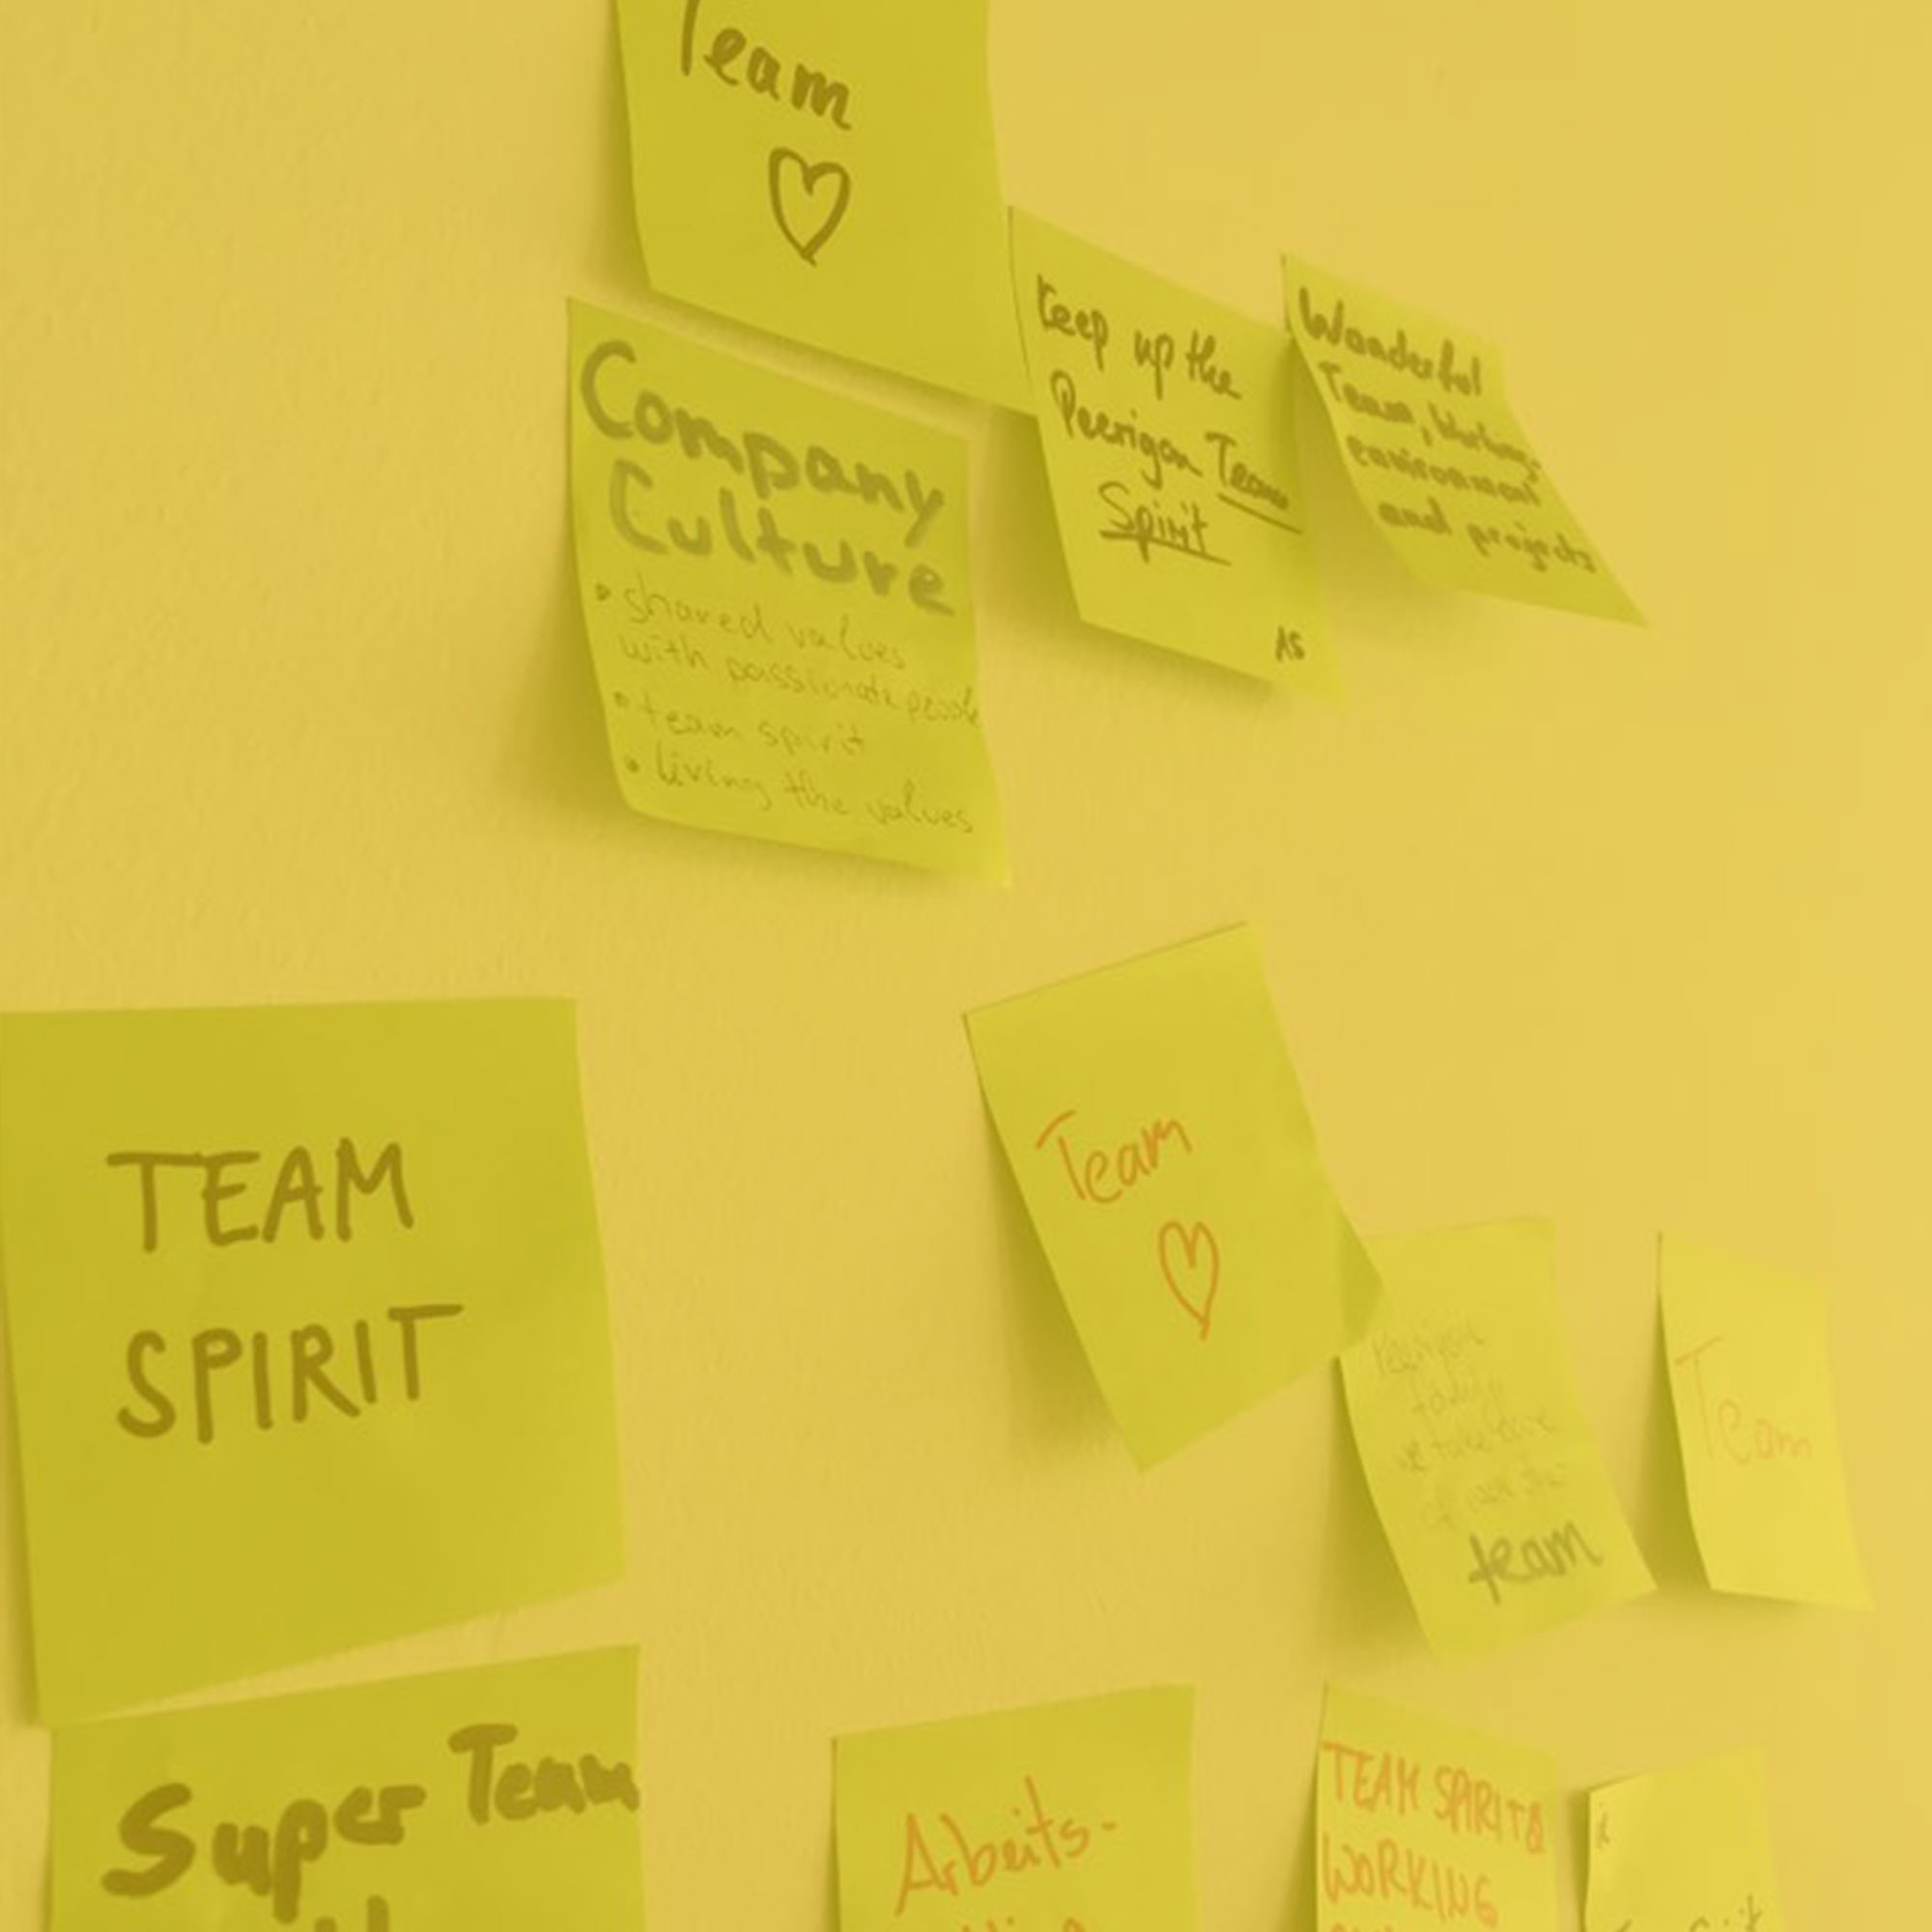 Team
Company
Culture
• shared values
with passionate people
• team spirit
• living the values
Keep up the
Peerigon Team
Spirit
AS
Wonderful
Team, Working-
environment
and projects
TEAM
SPIRIT
Team
Peerigon
family
we take care
of each other
team
Team
Super Team
Arbeits-
TEAM SPIRIT &
WORKING